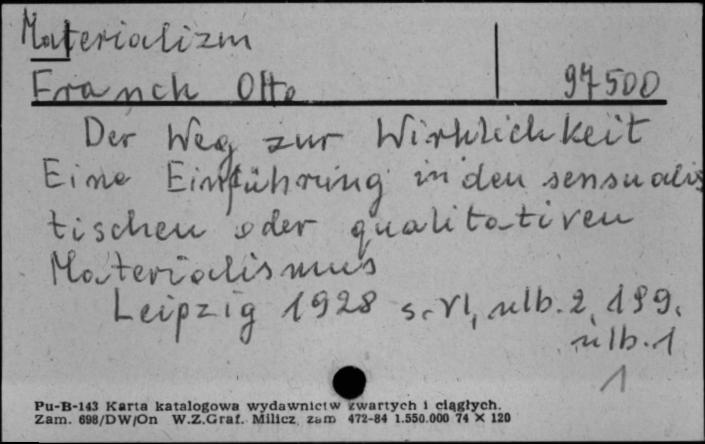 Materializm
Franck Otto 97500
Der Weg zur Wirklichkeit
Eine Einführung in den sensualis
tischen oder qualitativen
Materialismus
Leipzig 1928 s. VI, nlb. 2, 199,
nlb. 1
1
Pu-B-143 Karta katalogowa wydawnictw zwartych i ciągłych.
Zam. 698/DW/On W.Z.Graf. Milicz zam 472-84 1.550.000 74 X 120